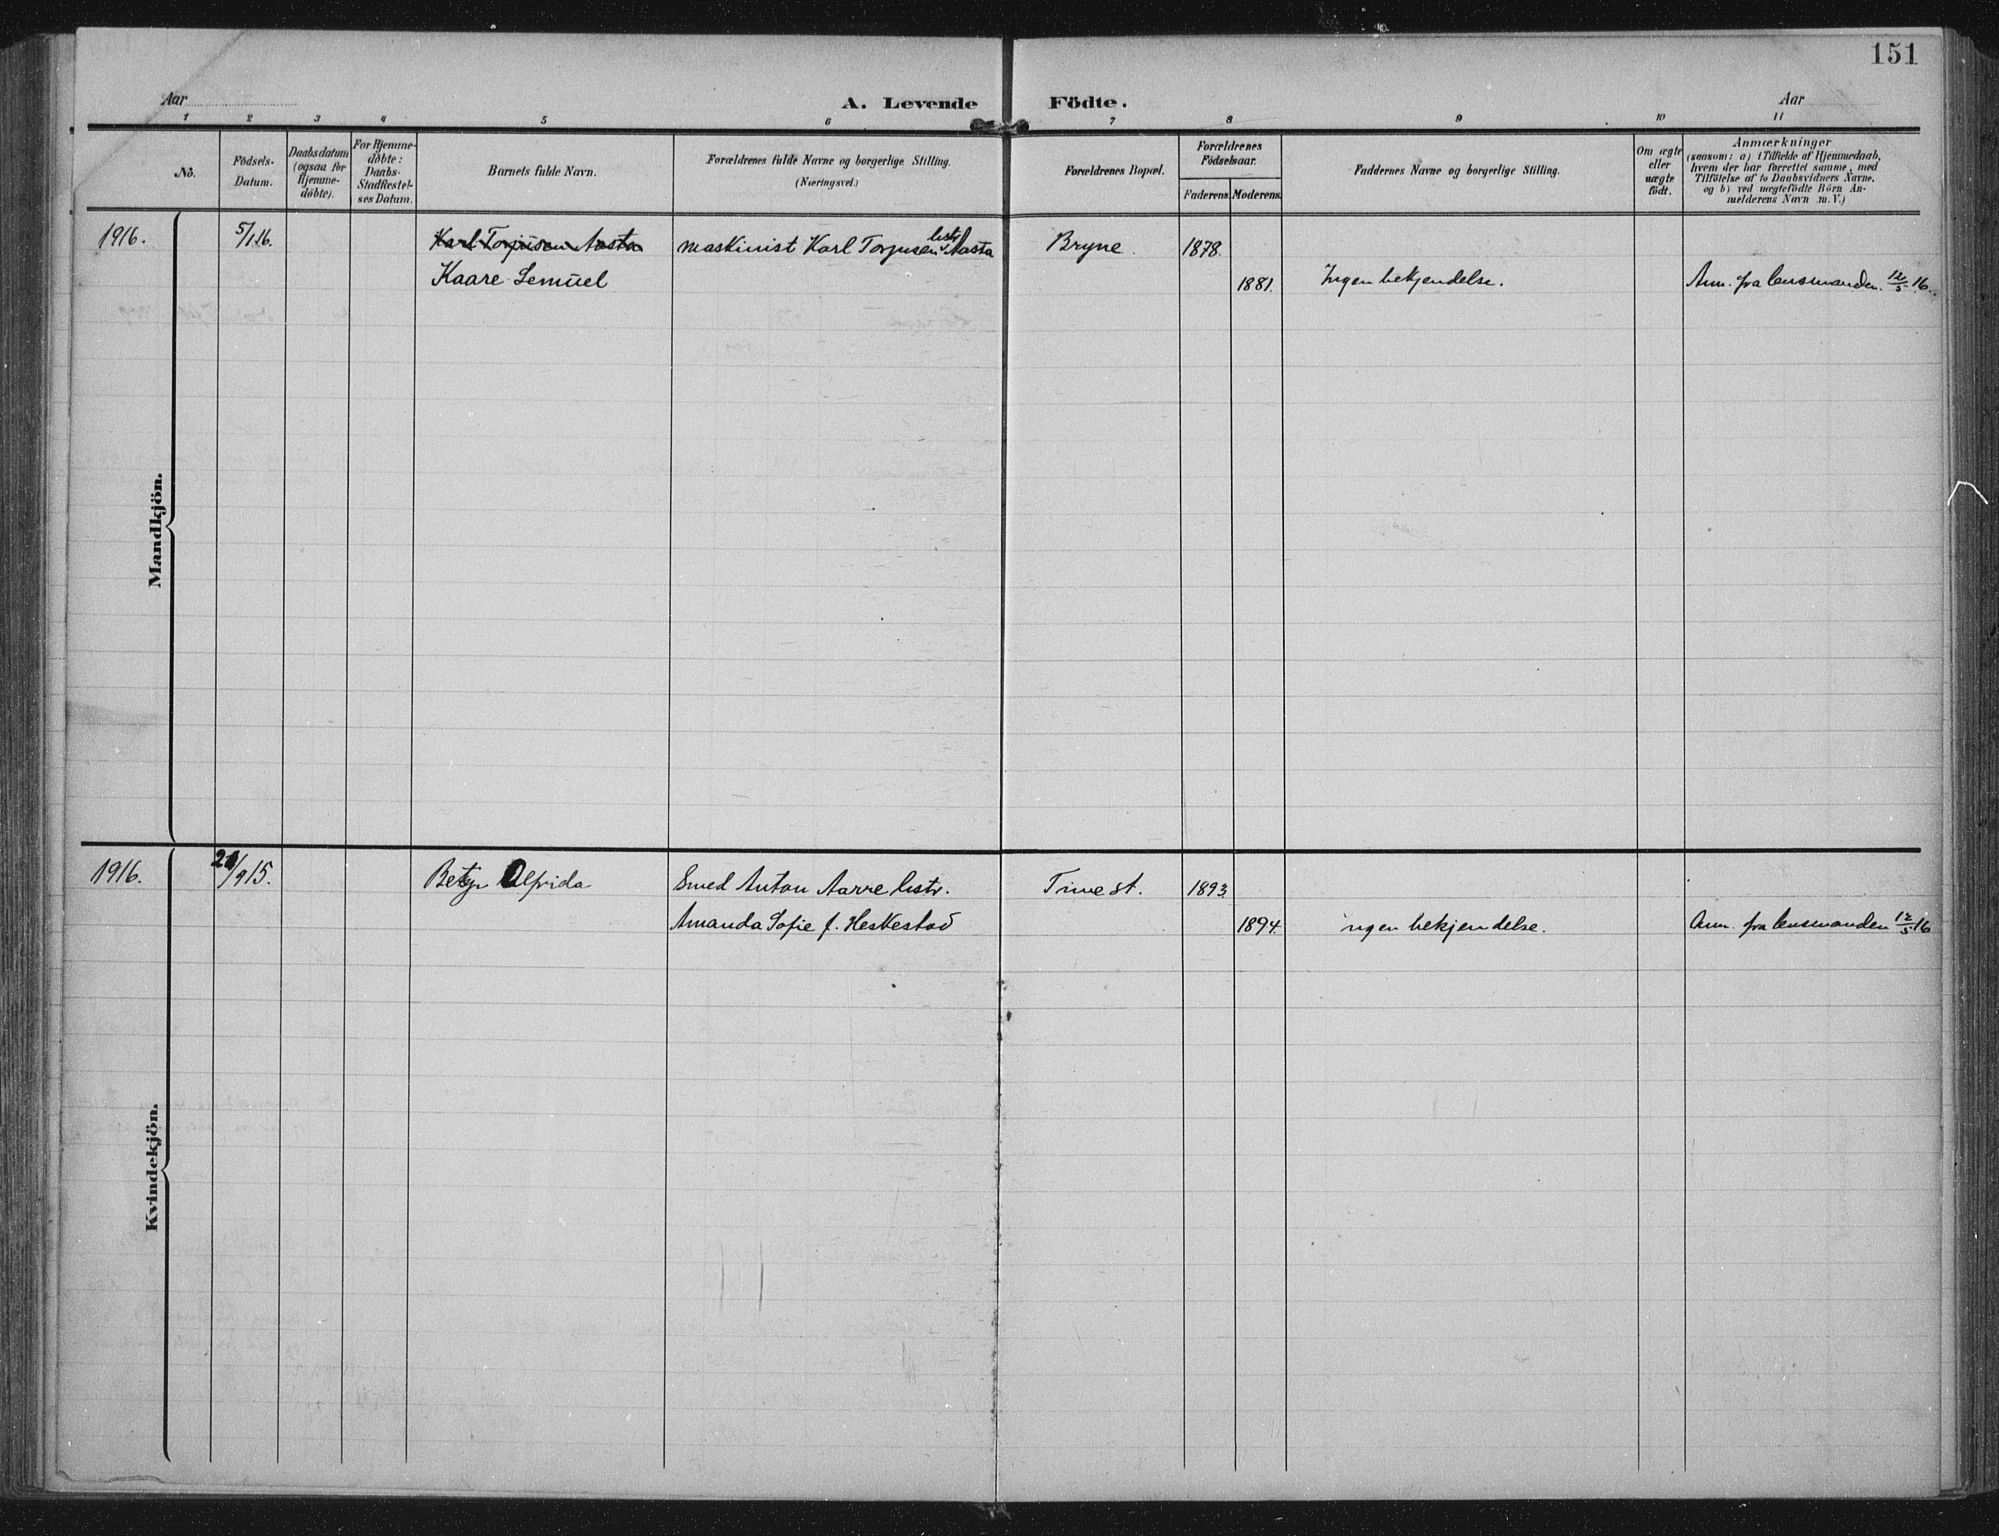 151
Aar
A. Levende Födte.
Aar
1 2 3 4 5 6 7 8 9 10 11
No.
Födsels-
Datum.
Daabsdatum
(ogsaa for
Hjemme-
döbte).
For Hjemme-
döbte:
Daabs-
Stadfæstel-
ses Datum.
Barnets fulde Navn.
Forældrenes fulde Navne og borgerlige Stilling.
(Næringsvei.)
Forældrenes Bopæl.
Forældrenes
Födselsaar.
Faderens. Moderens.
Faddernes Navne og borgerlige Stilling.
Om ægte
eller
uægte
födt.
Anmærkninger
(saasom: a) i Tilfælde af Hjemmedaab,
hvem der har forrettet samme, med
Tilföielse af to Daabsvidners Navne.
og b) ved uegtefödte Börn An-
melderens Navn m. V.)
Mandkjön.
1916. 5/1 16. Karl Torjusen Aasta maskinist Karl Torjusen hstr. Aasta Bryne. 1878.
Kaare Lemuel 1881. Ingen bekjendelse. Anm. fra lensmanden. 12/5 16.
Kvindekjön.
1916. /9 15. Betzy Alfrida Smed Anton Aarre hstr. Time st. 1893
Amanda Sofie f. Heskestad 1894. ingen bekjendelse. Anm. fra lensmanden 12/5 16